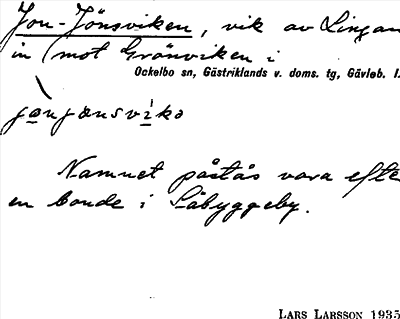 Jon-Jönsviken, vik av Lingan
in (mot Grönviken i
Ockelbo sn, Gästriklands v. doms. tg, Gävleb. l.
jonjönsvika
Namnet påstås vara efte
en bonde i Säbyggeby.
LARS LARSSON 1935